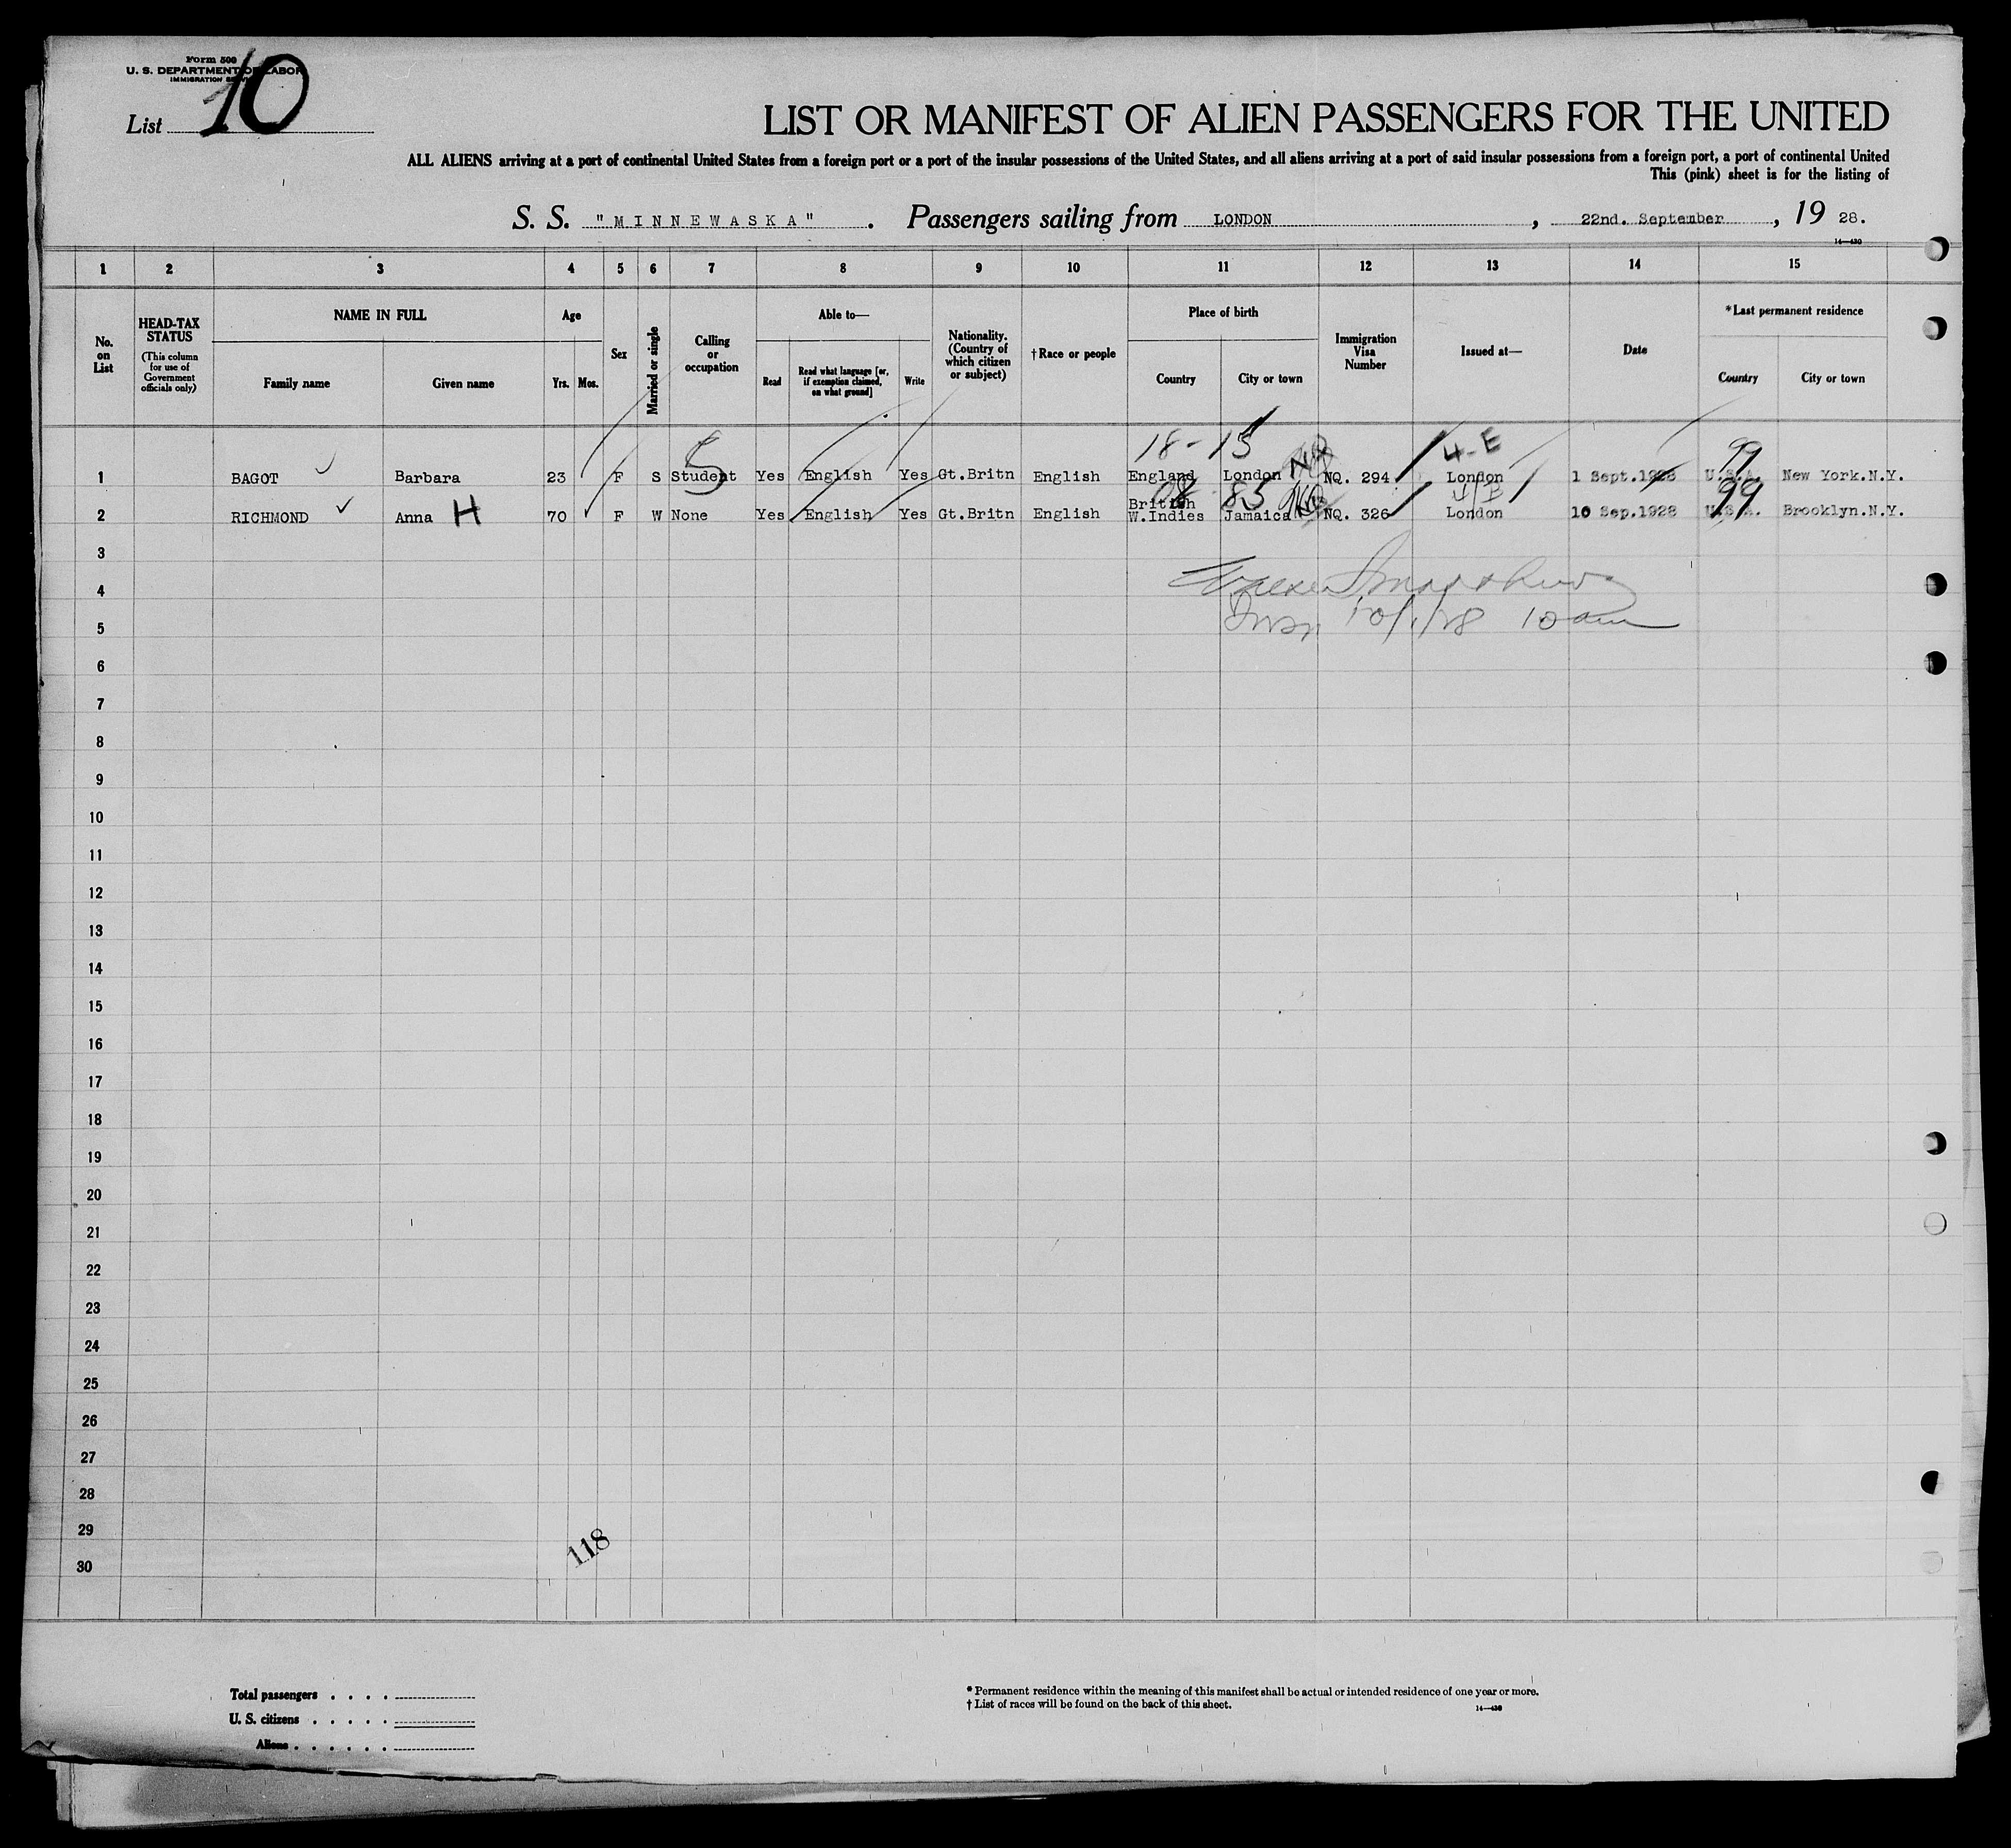 Form 500
U. S. DEPARTMENT OF LABOR
IMMIGRATION
List 10
LIST OR MANIFEST OF ALIEN PASSENGERS FOR THE UNITED
ALL ALIENS arriving at a port of continental United States from a foreign port or a port of the insular possessions of the United States, and all aliens arriving at a port of said insular possessions from a foreign port, a port of continental United
This (pink) sheet is for the listing of
S. S. "MINNEWASKA". Passengers sailing from LONDON, 22nd. September, 19 28.
14—430
1 2 3 4 5 6 7 8 9 10 11 12 13 14 15
No. on List
HEAD-TAX STATUS (This column for use of Government officials only)
NAME IN FULL
Family name Given name
Age
Yrs. Mos.
Sex
Married or single
Calling or occupation
Able to—
Read
Read what language [or, if exemption claimed, on what ground]
Write
Nationality. (Country of which citizen or subject)
†Race or people
Place of birth
Country City or town
Immigration Visa Number
Issued at—
Date
*Last permanent residence
Country City or town
18-15 4-E 99
1 BAGOT Barbara 23 F S Student Yes English Yes Gt.Britn English England London NQ. 294 London 1 Sept.1928 U.S.A. New York.N.Y.
5
2 RICHMOND Anna H 70 F W None Yes English Yes Gt.Britn English British W.Indies Jamaica NQ. 326 London 10 Sep.1928 U.S.A. Brooklyn.N.Y.
85 99
3
4
5 10/1/28 10 am
6
7
8
9
10
11
12
13
14
15
16
17
18
19
20
21
22
23
24
25
26
27
28
29
30
118
Total passengers . . . .
U. S. citizens . . . . .
Aliens . . . . . .
* Permanent residence within the meaning of this manifest shall be actual or intended residence of one year or more.
† List of races will be found on the back of this sheet.
14—430